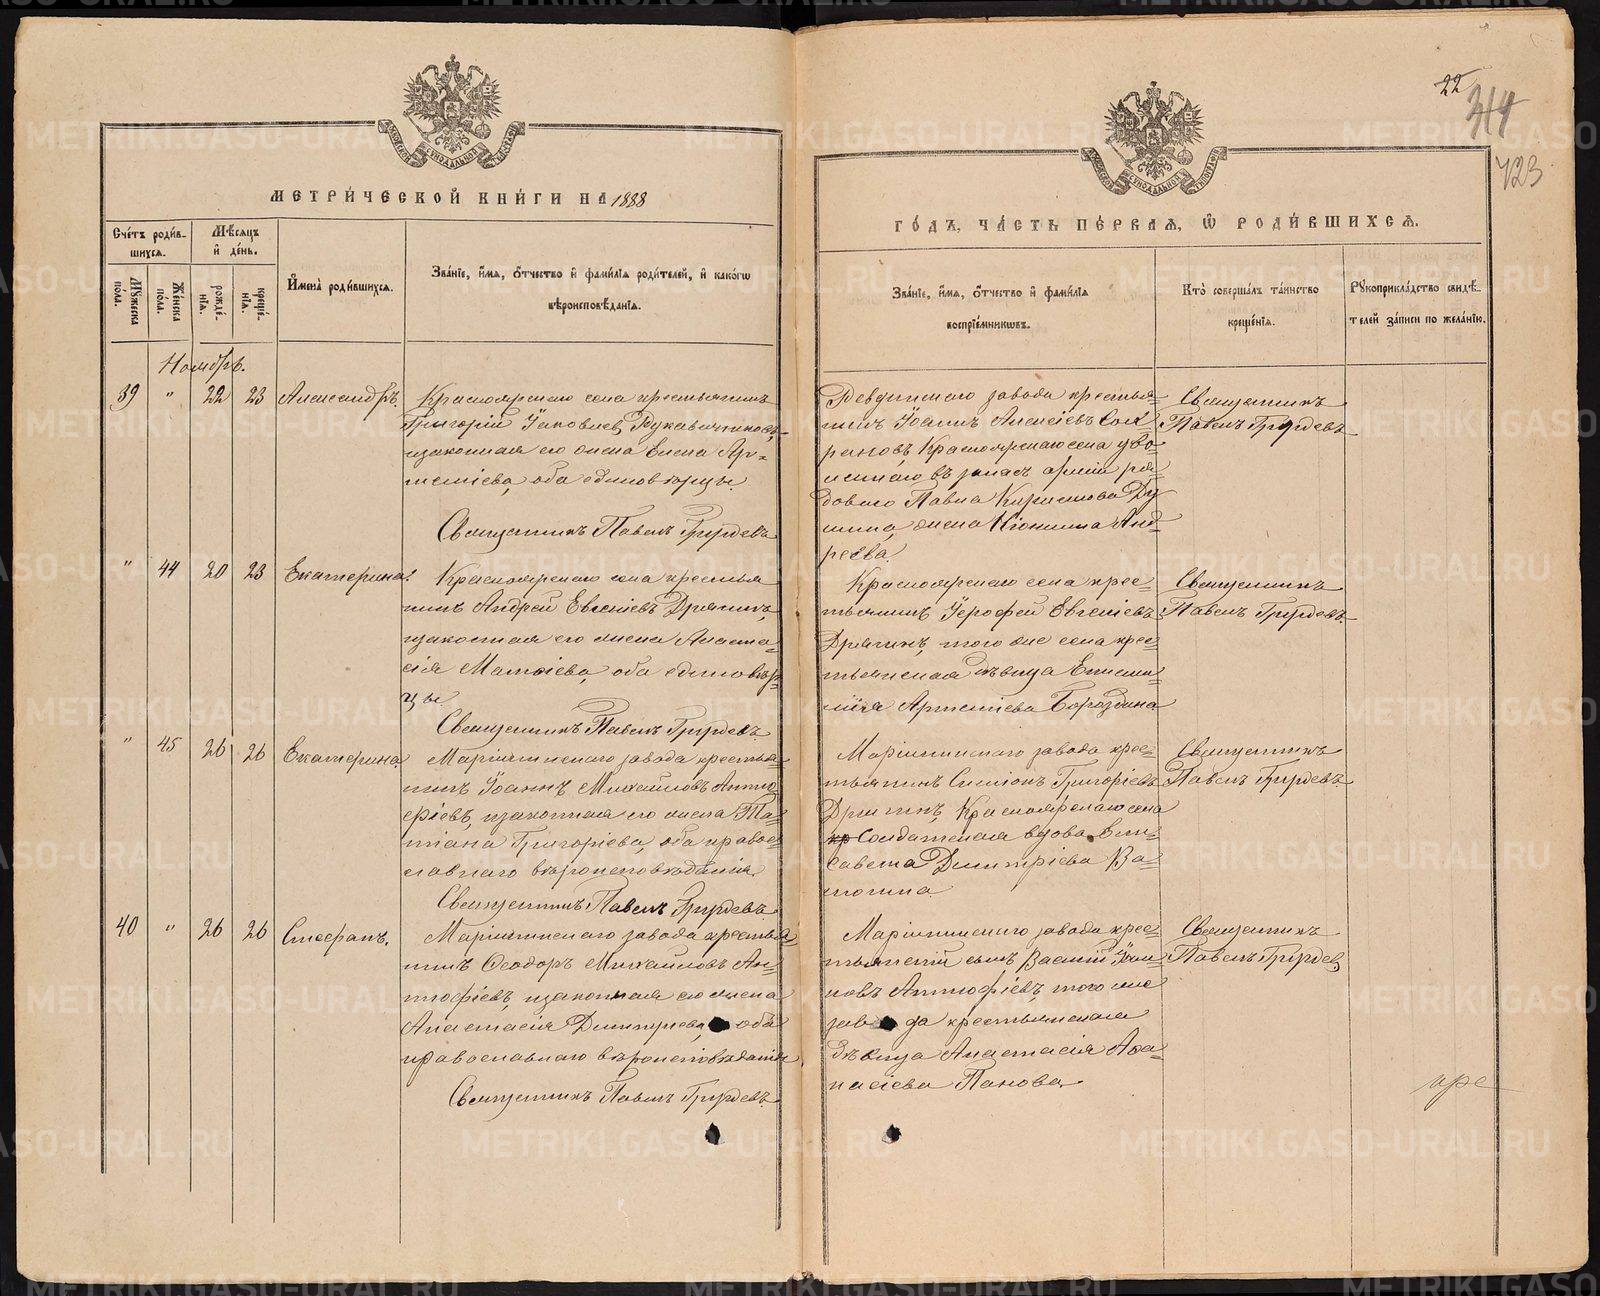 МЕТРИ́ЧЕСКОЙ КНИ́ГИ НА 1888
Сче́тъ роди́в-
шихся.
Мѣсяцъ
и҆ де́нь.
Му́жеска
пола.
Же́нска
пола.
рожде́-
нія.
креще́-
нія.
И҆мена̀ роди́вшихся.
Зва́ніе, и҆́мя, ѻ҆́тчество и҆ фами́лія роди́телей, и҆ како́гѡ
вѣроисповѣ́данія.
Ноябрь.
39 " 22 23 Александръ.
Красноярскаго села крестьянинъ
Григорій Яковлевъ Рукавишниковъ,
и законная его жена Елена Ар-
темиева, оба единоверцы.
Священникъ Павелъ Груздевъ
" 44 20 23 Екатерина.
Красноярскаго села крестья
нинъ Андрей Евгеніевъ Дрягинъ,
и законная его жена Анаста-
сія Матѳіева, оба единовѣр-
цы
Священникъ Павелъ Груздевъ.
" 45 26 26 Екатерина.
Маріинскаго завода крестья-
нинъ Іоаннъ Михайловъ Анти-
фіевъ, и законная его жена Та-
тіана Григоріева, оба правос-
лавнаго вѣроисповѣданія.
Священникъ Павелъ Груздевъ.
40 " 26 26 Стефанъ.
Маріинскаго завода крестья
нинъ Ѳеодоръ Михайловъ Ан-
тифіевъ, и законная его жена
Анастасія Димитріева, оба
православнаго вѣроисповѣданія
Священникъ Павелъ Груздевъ.
22
314
723
ГО́ДЪ, ЧА́СТЬ ПЕ́РВАЯ, Ѡ҆ РОДИ́ВШИХСЯ.
Зва́ніе, и҆́мя, ѻ҆́тчество и҆ фами́лія
воспріе́мниковъ.
Кто̀ соверша́лъ та́инство
креще́нія.
Рукоприкла́дство свидѣ́-
телей за́писи по жела́нію.
Ревдинскаго завода крестья-
нинъ Іоаннъ Алексіевъ
Красноярскаго села уво-
леннаго въ запасъ арміи ря-
доваго Павла Кирилова
жена Ксенія Анд-
реева.
Священникъ
Павелъ Груздевъ
Красноярскаго села крес-
тьянинъ Іерофей Евгеніевъ
Дрягинъ, того же села крес-
тьянская дѣвица
Артемиева Бороздина
Священникъ
Павелъ Груздевъ.
Маріинскаго завода крес-
тьянинъ Симіонъ Григоріевъ
Красноярскаго села
кр солдатская вдова Ели-
савета Димитріева Ва-
тогина.
Священникъ
Павелъ Груздевъ
Маріинскаго завода крес-
тьянскій сынъ Василій Іоан
новъ Антифіевъ, того же
завода крестьянская
дѣвица Анастасія Аѳа-
насіева Панова.
Священникъ
Павелъ Груздевъ
METRIKI.GASO-URAL.RU